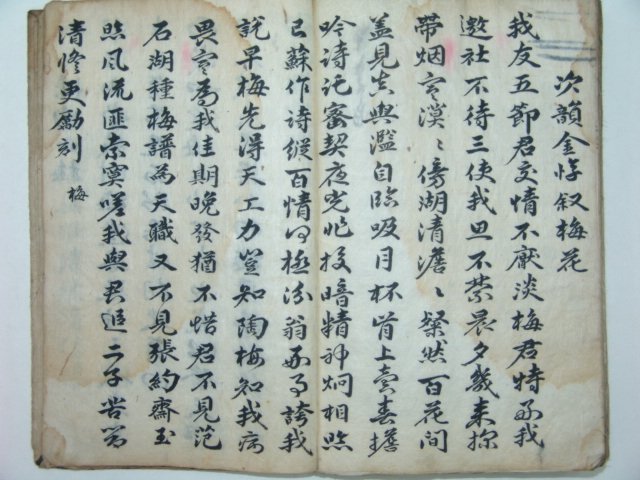 次韻金惇叙梅花
我友五節君交情不厭淡梅君特好我
邀社不待三使我思不禁晨夕幾来探
帶烟寒漠〻傍湖清澹〻粲然百花間
益見真與濫自臨吸月杯肯上賣春擔
吟詩託密契夜光非投暗精神炯相照
蘇作詩百情極翁誇我
說早梅先得天工力豈知陶梅知我病
畏寒爲我佳期晚發猶不惜君不見范
石湖種梅譜爲天職又不見張約齋玉
照風流匪索寞嗟我與君追二子苦節
清修更勵刻 梅